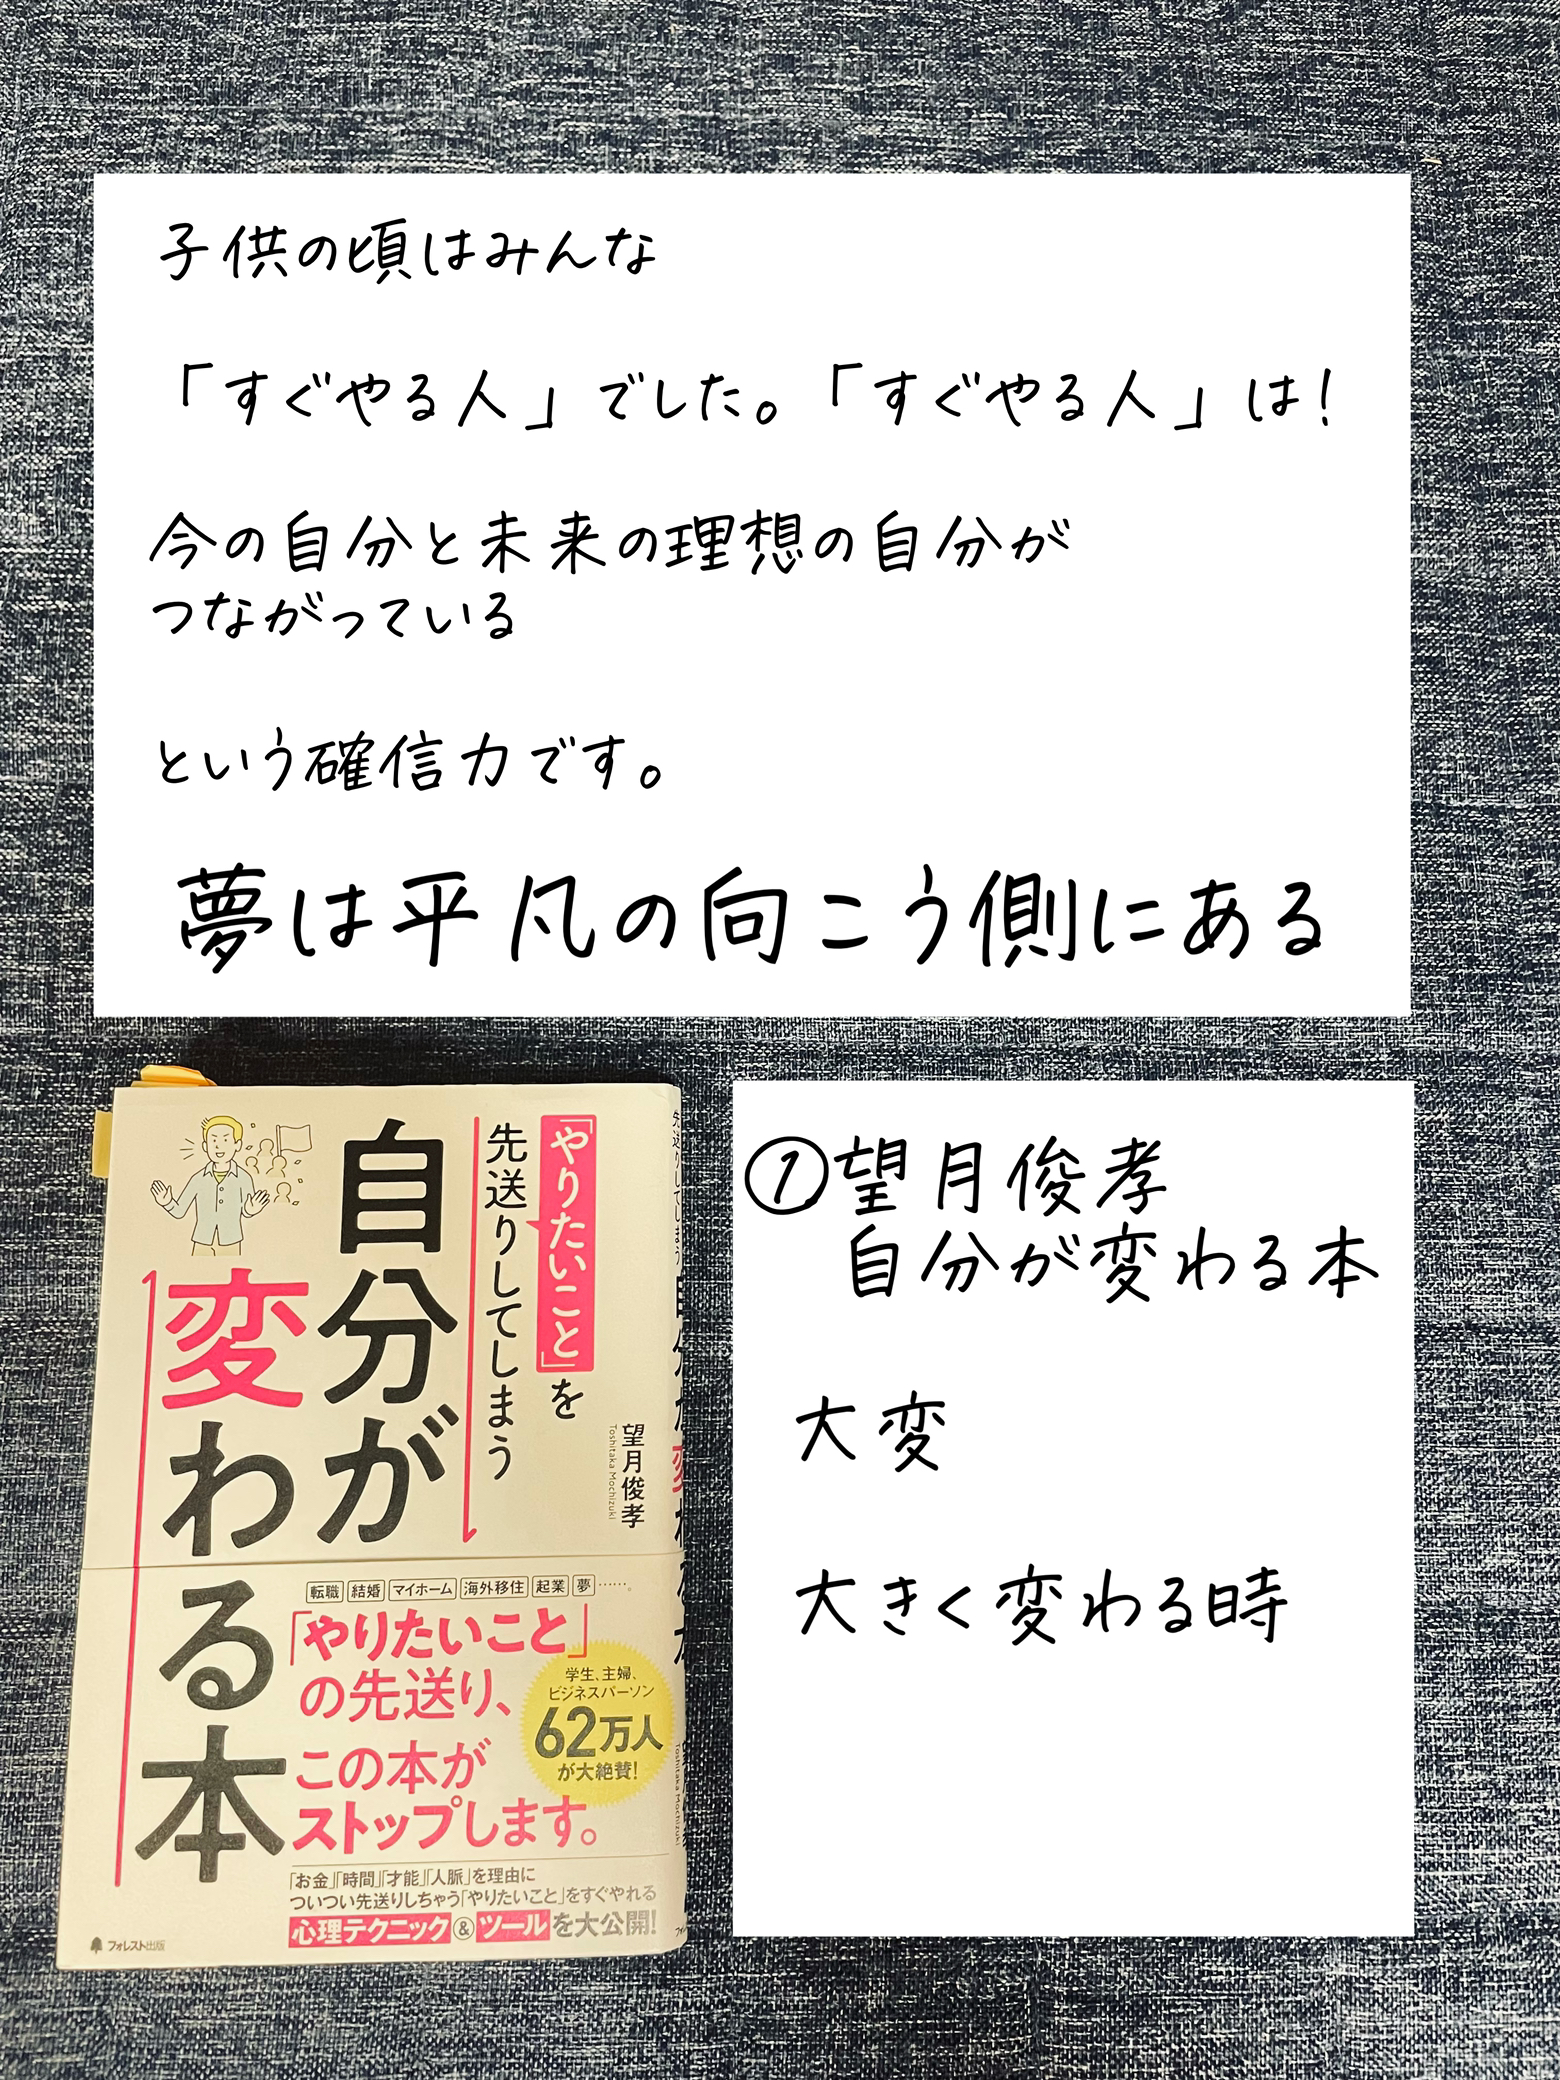 子供の頃はみんな
「すぐやる人」でした。「すぐやる人」は!
今の自分と未来の理想の自分が
つながっている
という確信力です。
夢は平凡の向こう側にある
「やりたいこと」を
先送りしてしまう
自分が
変わる本
望月俊孝
Toshitaka Mochizuki
転職 結婚 マイホーム 海外移住 起業 夢 ……。
「やりたいこと」
の先送り、
この本が
ストップします。
学生、主婦、
ビジネスパーソン
62万人
が大絶賛!
「お金」「時間」「才能」「人脈」を理由に
ついつい先送りしちゃう「やりたいこと」をすぐやれる
心理テクニック&ツールを大公開!
フォレスト出版
①望月俊孝
自分が変わる本
大変
大きく変わる時